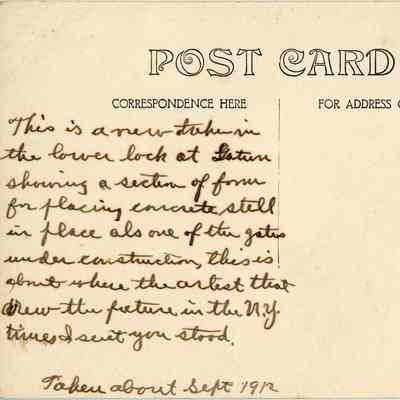 POST CARD
CORRESPONDENCE HERE
FOR ADDRESS
This is a view taken in
the lower lock at Gatun
showing a section of form
for placing concrete still
in place als one of the gates
under construction, this is
about where the artist that
drew the picture in the N.Y.
times I sent you stood.
Taken about Sept 1912